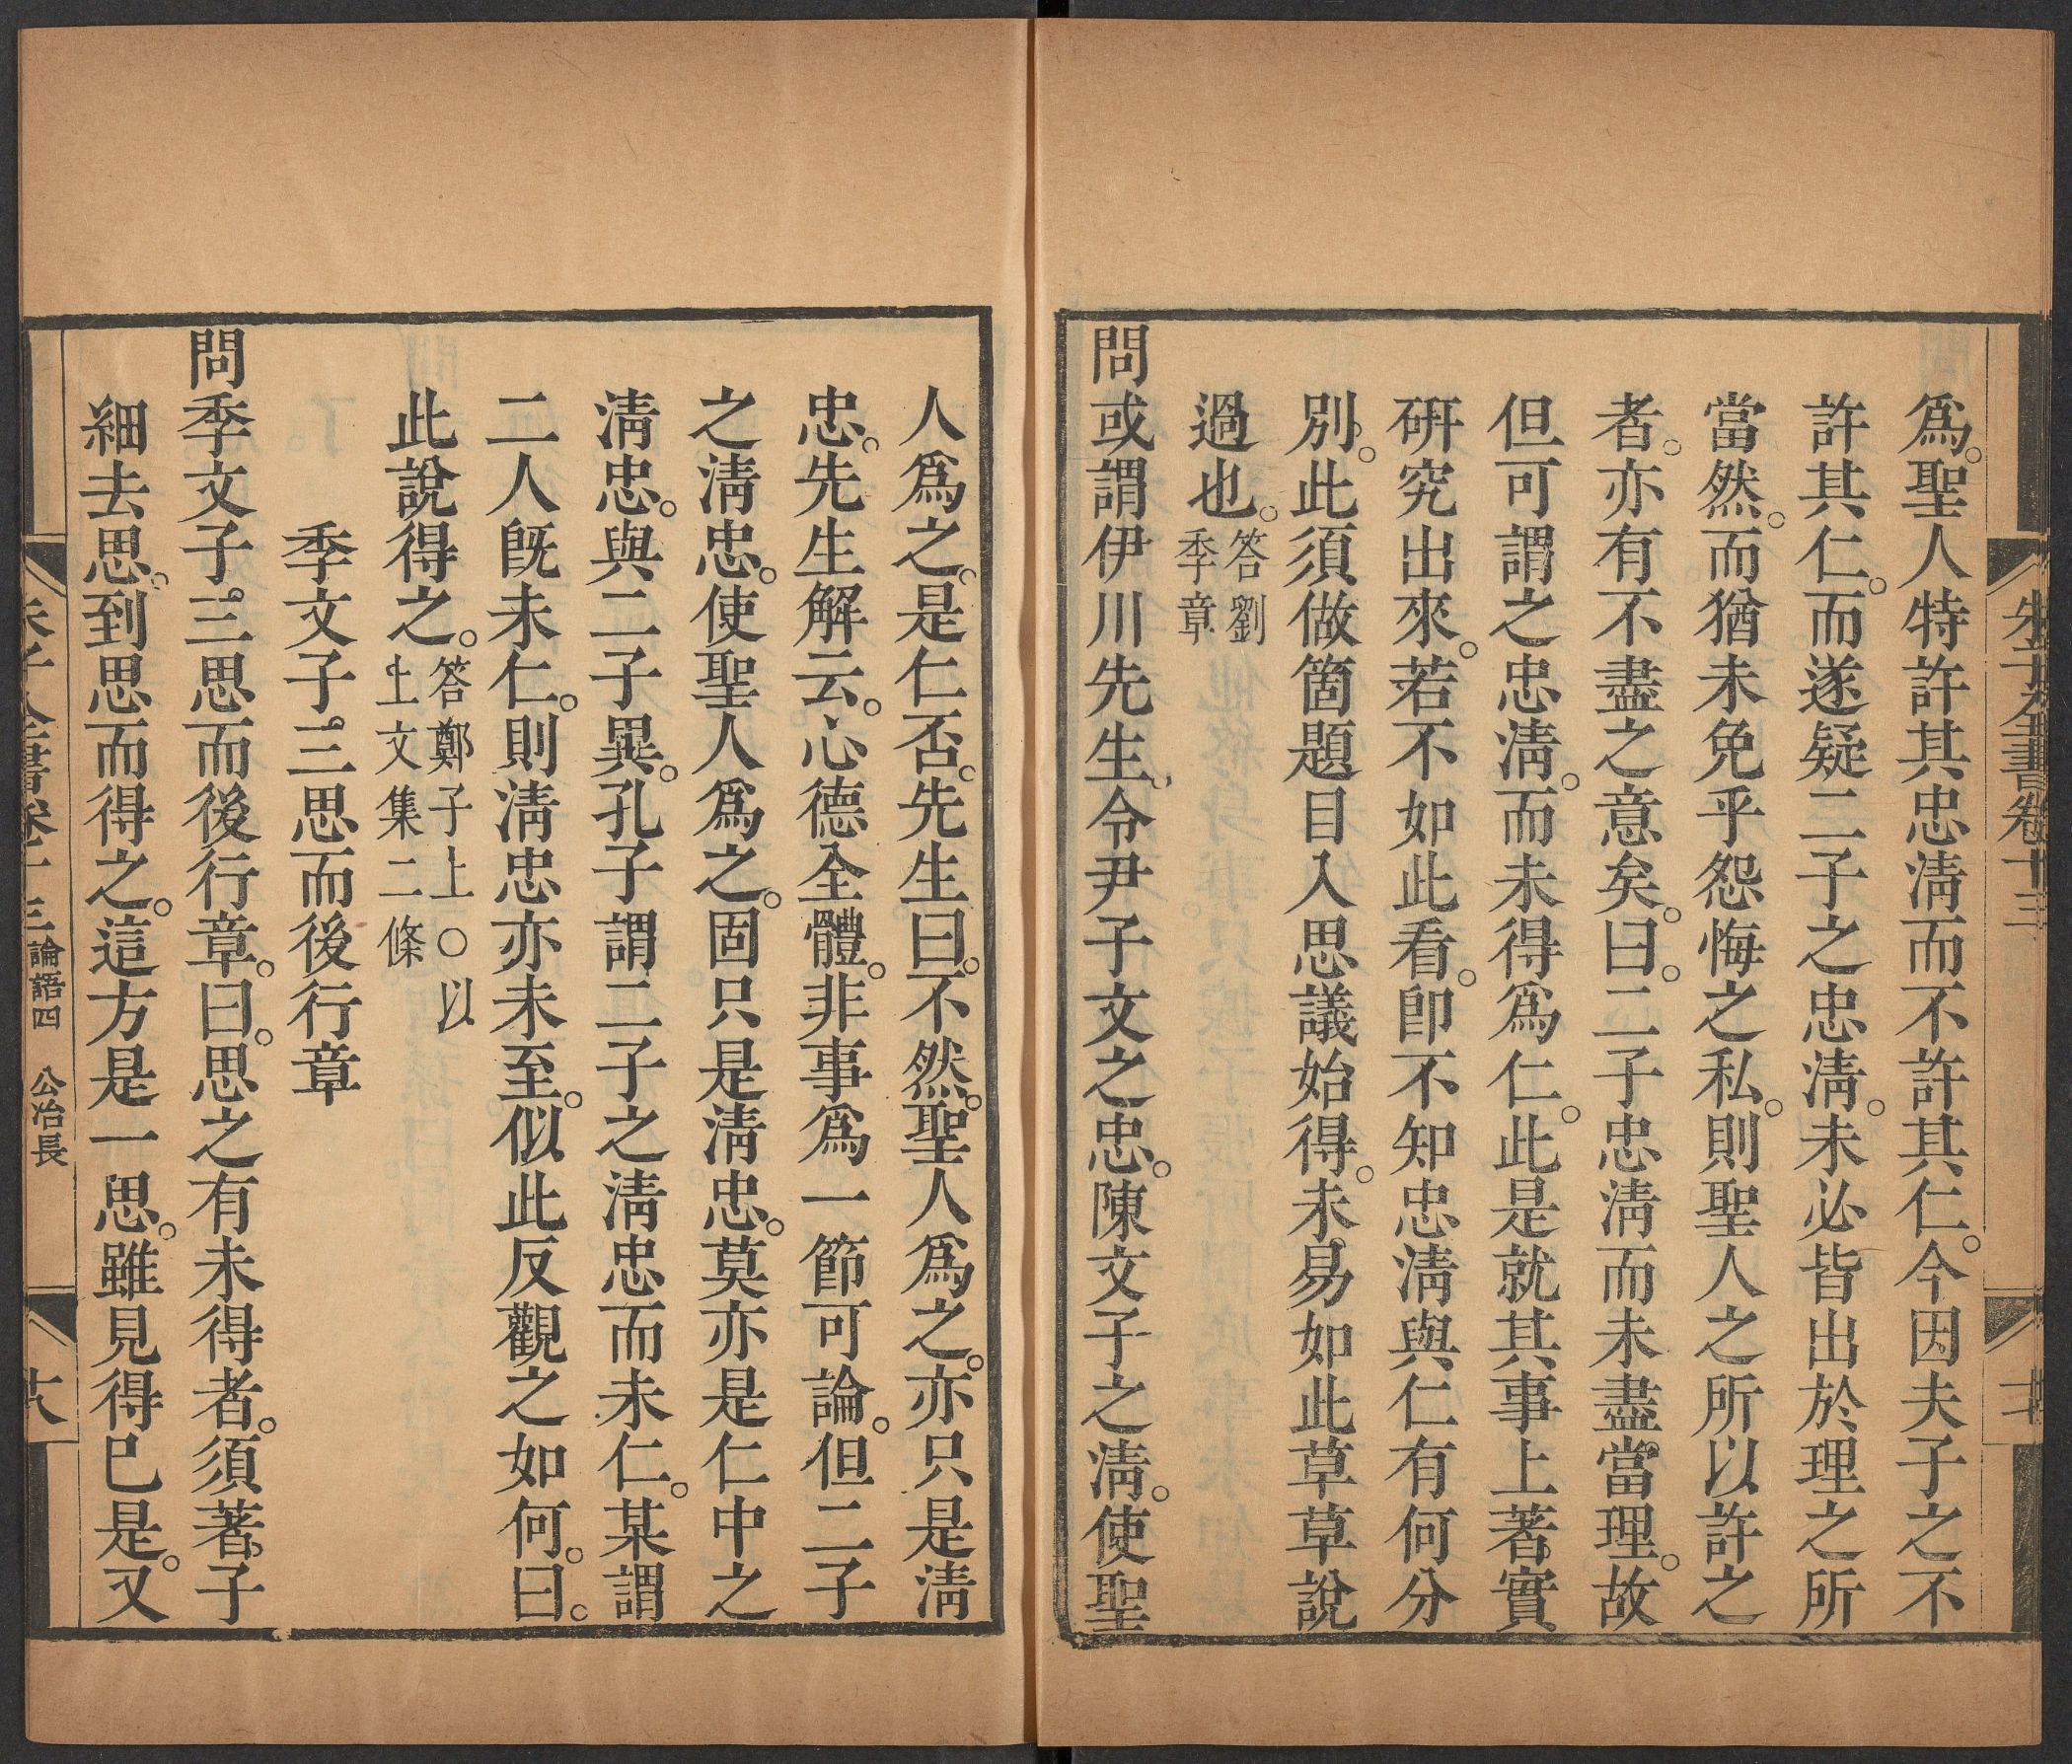 朱子全書卷十三
爲。聖人特許其忠淸而不許其仁。今因夫子之不
許其仁。而遂疑二子之忠淸。未必皆出於理之所
當然。而猶未免乎怨悔之私。則聖人之所以許之
者。亦有不盡之意矣。曰。二子忠淸而未盡當理。故
但可謂之忠淸。而未得爲仁。此是就其事上著實
硏究出來。若不如此看。卽不知忠淸與仁有何分
別。此須做箇題目入思議始得。未易如此草草說
過也。答劉
季章
問或謂伊川先生。令尹子文之忠。陳文子之淸。使聖
人爲之。是仁否。先生曰。不然。聖人爲之。亦只是淸
忠。先生解云。心德全體。非事爲一節可論。但二子
之淸忠。使聖人爲之。固只是淸忠。莫亦是仁中之
淸忠。與二子異。孔子謂二子之淸忠而未仁。某謂
二人旣未仁。則淸忠亦未至。似此反觀之如何。曰。
此說得之。答鄭子上○以
上文集二條
季文子。三思而後行章
問季文子。三思而後行章。曰。思之有未得者。須著子
細去思。到思而得之。這方是一思。雖見得已是。又
朱子全書卷十三 論語四 公冶長 廿八